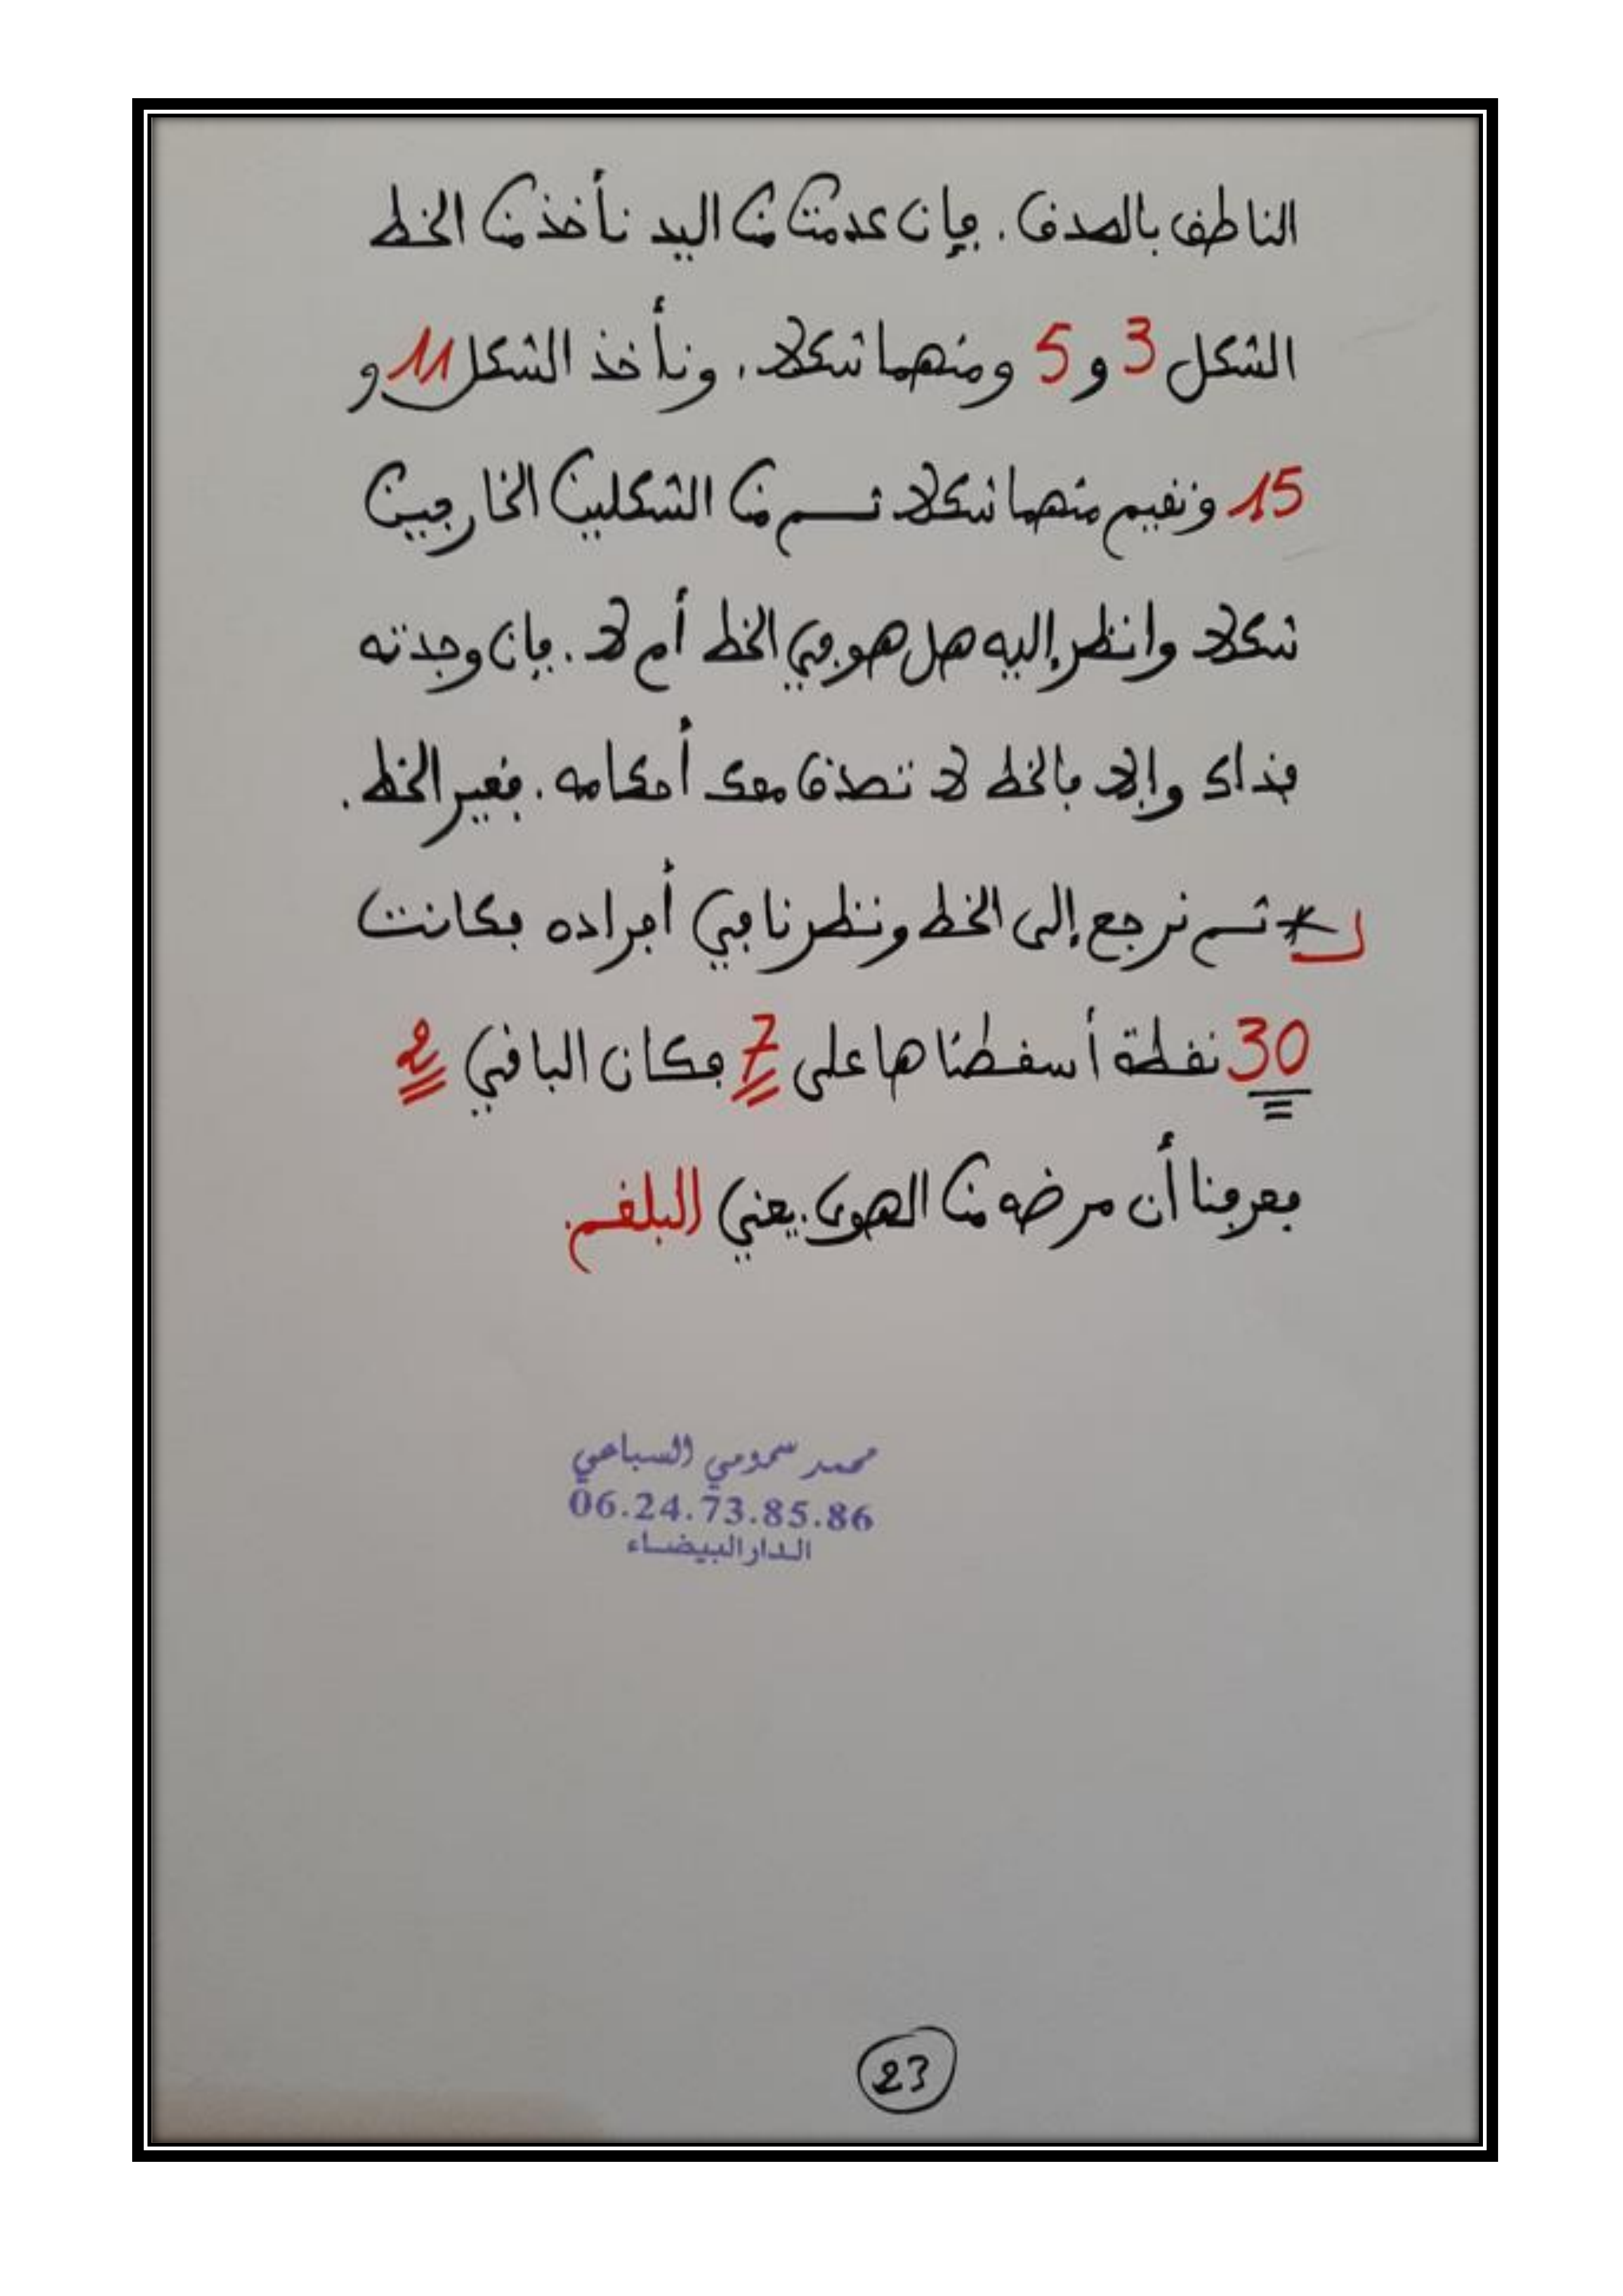 الناطق بالصدق. فإن عدمت من اليد نأخذ من الخط
الشكل 3 و 5 ومنهما شكلا. ونأخذ الشكل 11 و
15 ونقيم منهما شكلا ثم من الشكلين الخارجين
شكلا وانظر إليه هل هو في الخط أم لا. فإن وجدته
فذاك وإلا فالخط لا تصدق معك أحكامه. فغير الخط.
* ثم نرجع إلى الخط ونظرنا في أفراده فكانت
30 نقطة أسقطناها على 7 فكان الباقي 2
فعرفنا أن مرضه من الهوى. يعني البلغم.
محمد سمومي السباعي
06.24.73.85.86
الدار البيضاء
23